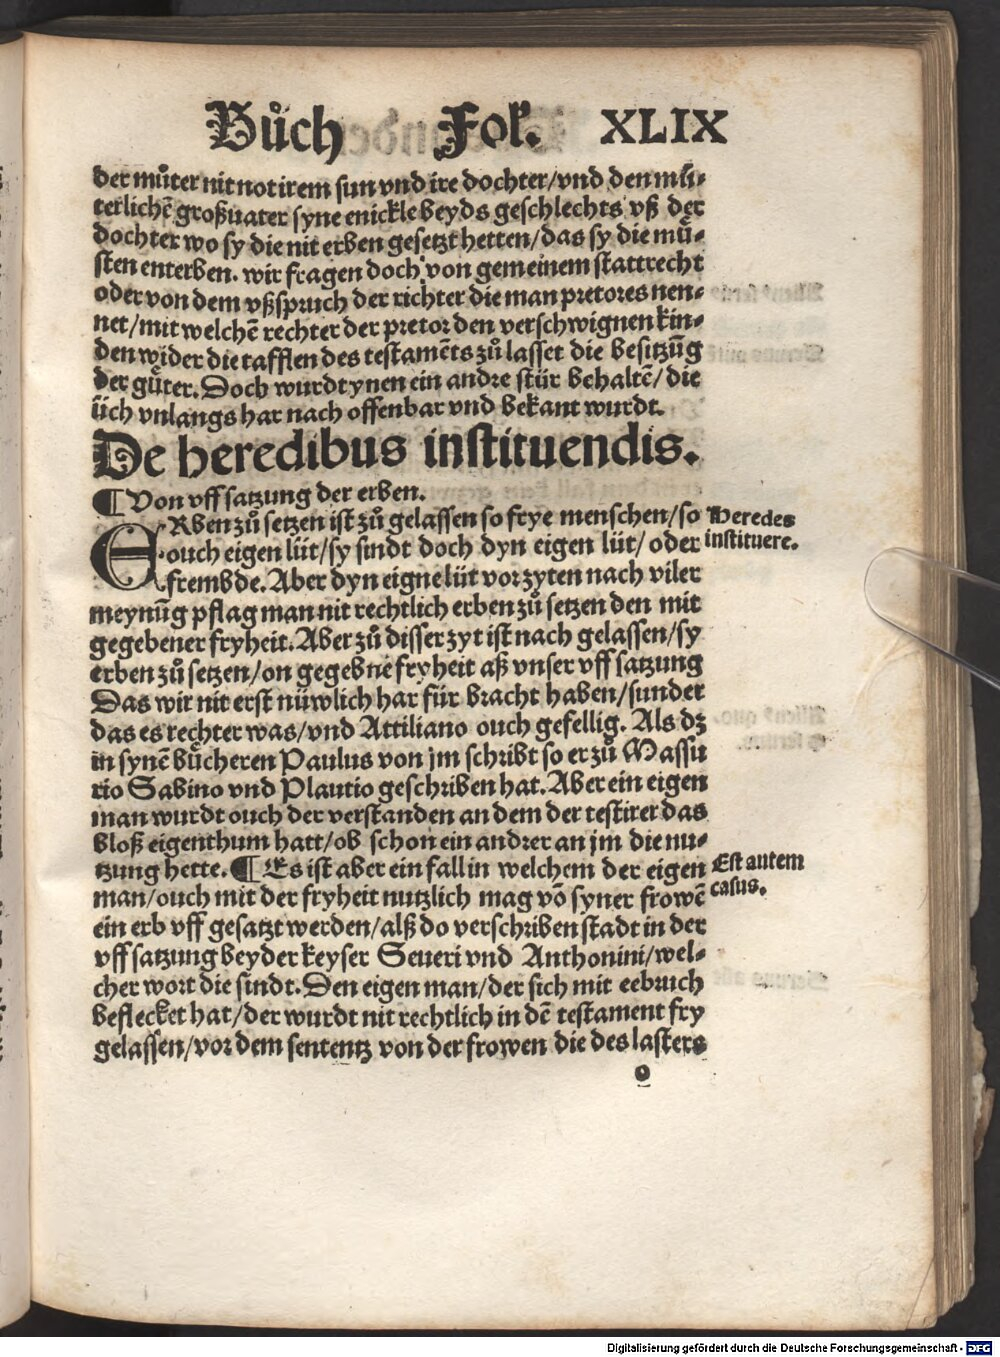 Bůch Fol. XLIX
der můter nit not irem sun vnd ire dochter/vnd den mů-
terlichē großuater syne enickle beyds geschlechts vß der
dochter wo sy die nit erben gesetzt hetten/das sy die mů-
sten enterben. wir fragen doch von gemeinem stattrecht
oder von dem vßspruch der richter die man pretores nen-
net/mit welchē rechter der pretor den verschwignen kin-
den wider die tafflen des testamēts zů lasset die besitzūg
der gůter. Doch wurdt ynen ein andre stür behaltē/die
üch vnlangs har nach offenbar vnd bekant wurdt.
De heredibus instituendis.
¶ Von vff satzung der erben.
ERben zů setzen ist zů gelassen so frye menschen/so
ouch eigen lüt/sy sindt doch dyn eigen lüt/oder
frembde. Aber dyn eigne lüt vor zyten nach viler
meynūg pflag man nit rechtlich erben zů setzen den mit
gegebener fryheit. Aber zů disser zyt ist nach gelassen/sy
erben zů setzen/on gegebne fryheit aß vnser vff satzung
Das wir nit erst nüwlich har für bracht haben/sunder
das es rechter was/vnd Attiliano ouch gefellig. Als dz
in synē bůcheren Paulus von jm schribt so er zů Massu
rio Sabino vnd Plautio geschriben hat. Aber ein eigen
man wurdt ouch der verstanden an dem der testirer das
bloß eigenthum hatt/ob schon ein andrer an jm die nu-
tzung hette. ¶ Es ist aber ein fall in welchem der eigen
man/ouch mit der fryheit nutzlich mag vō syner frowē
ein erb vff gesatzt werden/alß do verschriben stadt in der
vff satzung beyder keyser Seueri vnd Anthonini/wel-
cher wort die sindt. Den eigen man/der sich mit eebruch
beflecket hat/der wurdt nit rechtlich in dē testament fry
gelassen/vor dem sententz von der frowen die des lasters
o
Heredes
instituere.
Est autem
casus.
Digitalisierung gefördert durch die Deutsche Forschungsgemeinschaft - DFG